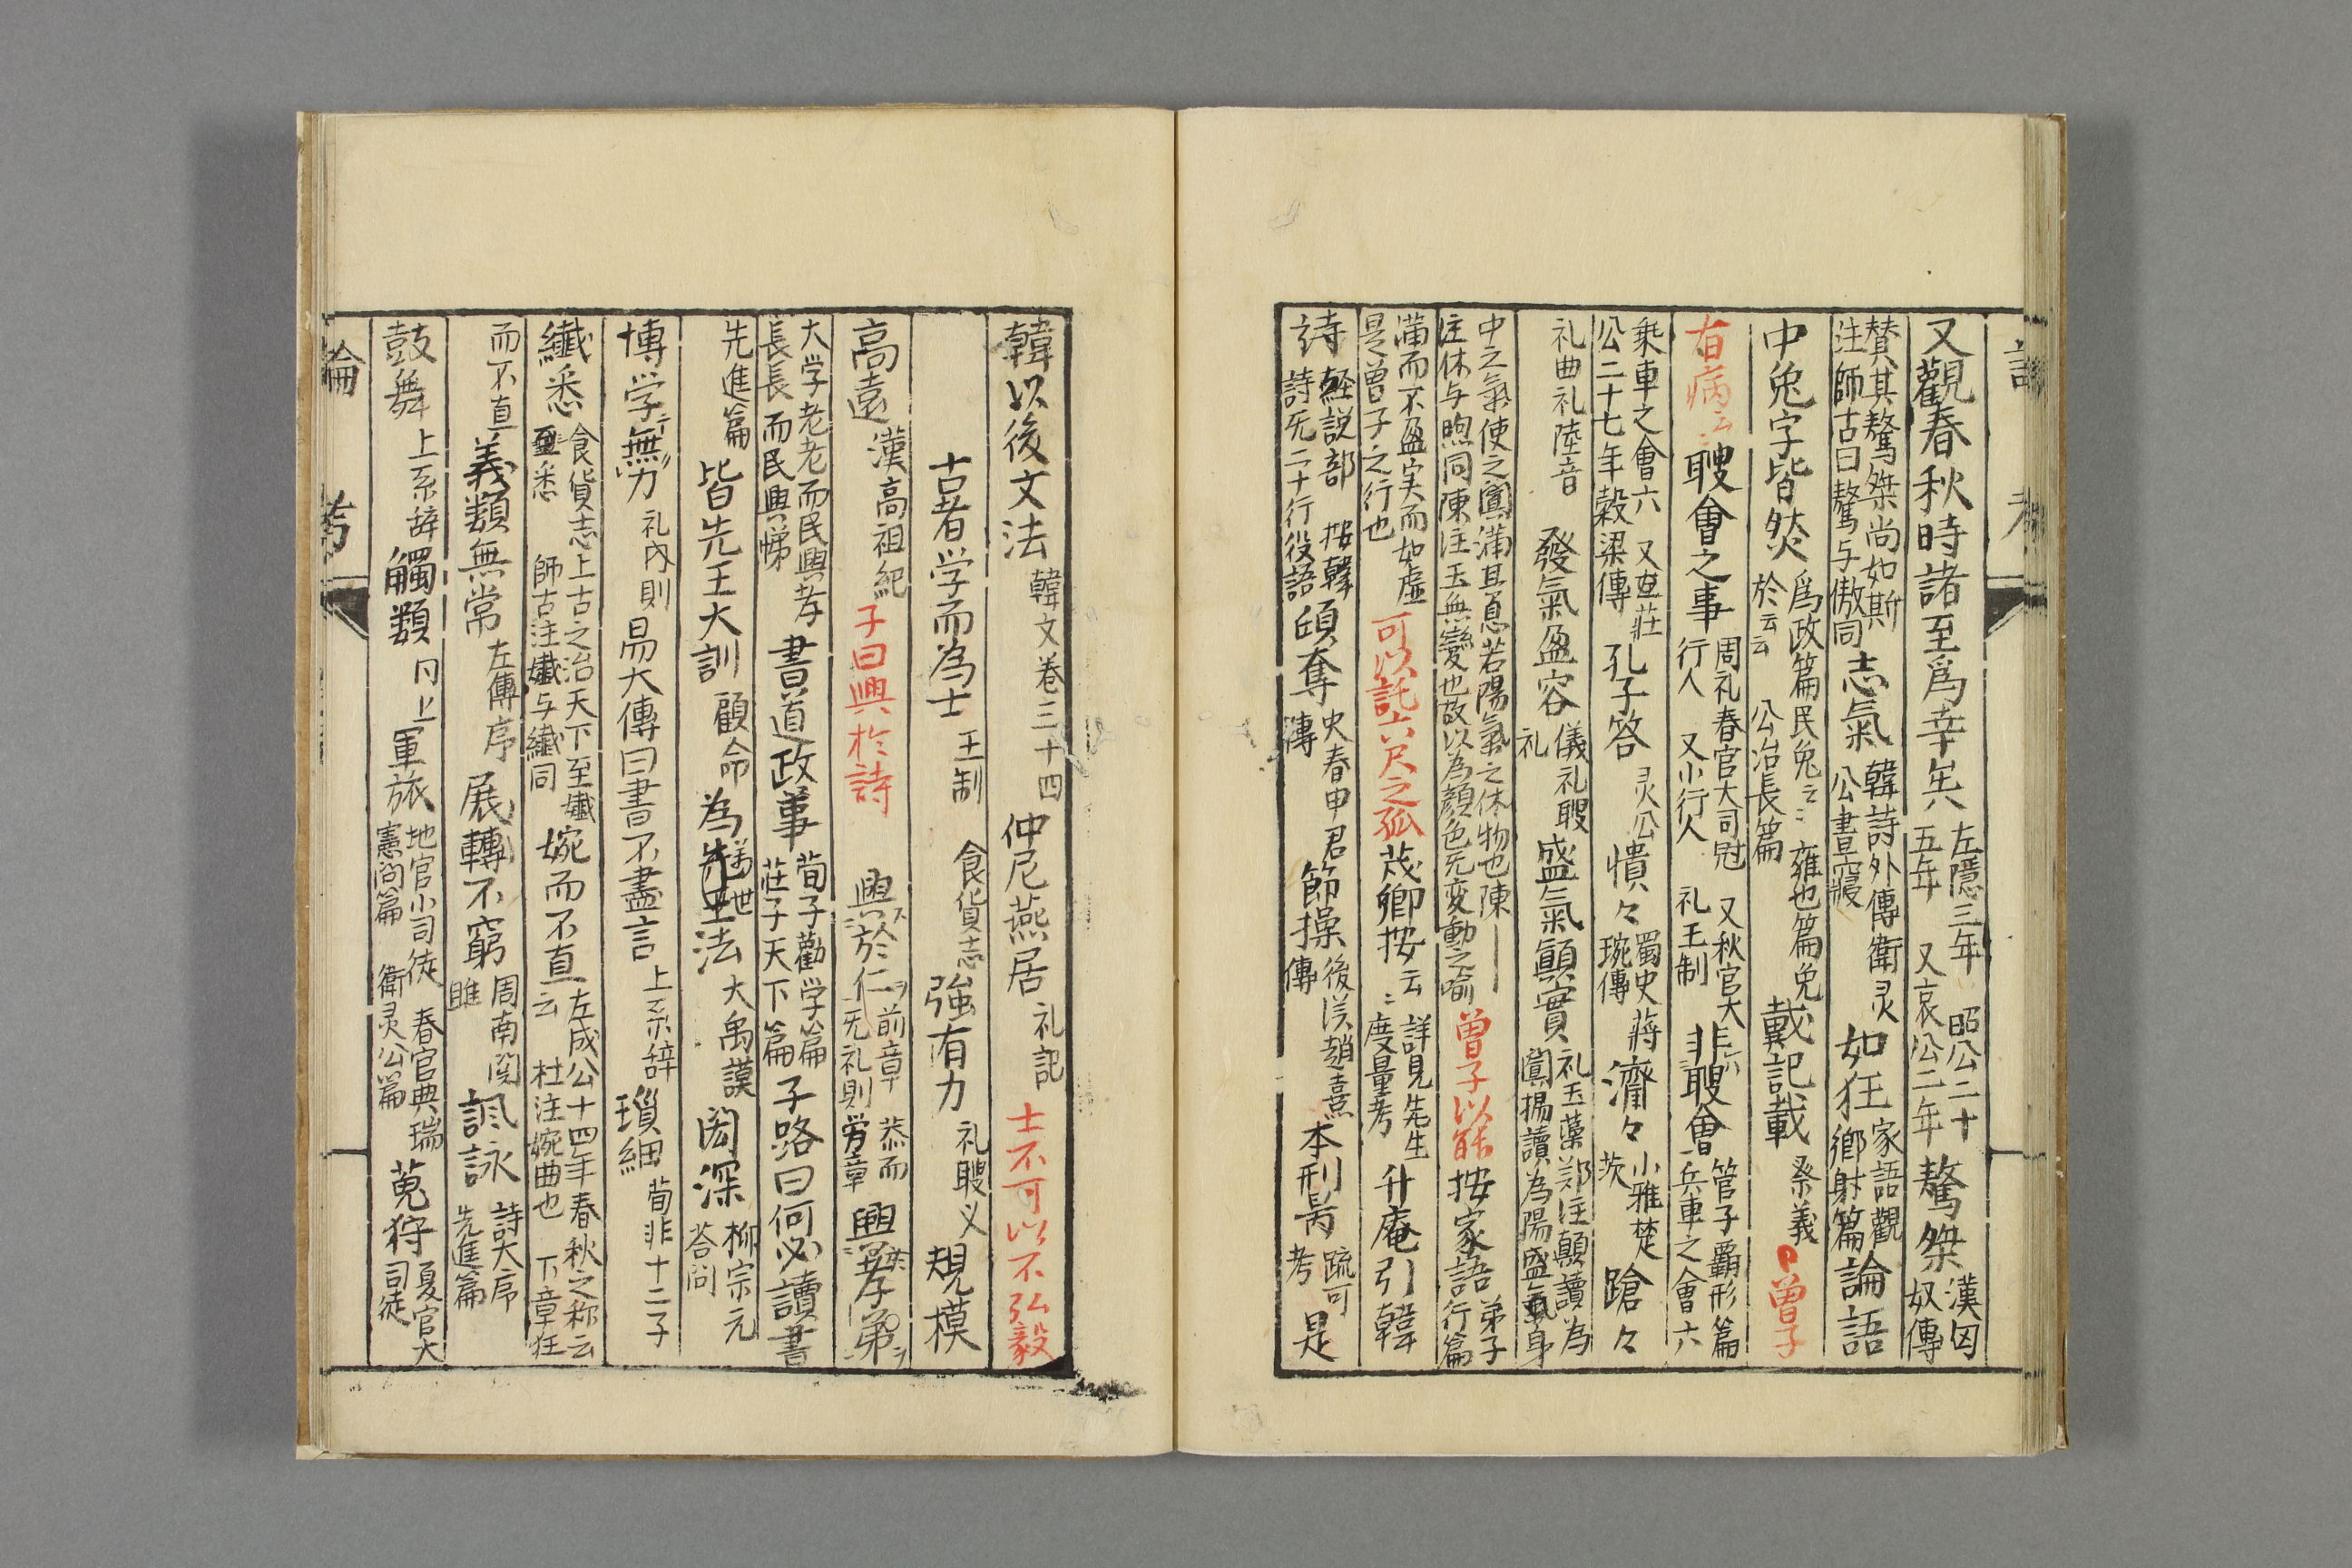 又觀春秋時諸至爲幸矣 左隱三年 昭公二十五年 又哀公二年 驁桀 漢匈奴傳
贊其驁桀尚如斯注師古曰驁与傲同 志氣 韓詩外傳 衛灵公晝寢 如狂 家語觀鄉射篇 論語
中免字皆然 爲政篇民免云〻 雍也篇免於云云 公冶長篇 戴記載 祭義 曽子
有病云〻 聘會之事 周礼春官大司冠 又秋官大行人 又小行人 礼王制 非聘會 管子霸形篇 兵車之會六
乘車之會六 又莊公二十七年穀梁傳 孔子答 灵公 憒々 蜀史蔣琬傳 濟々 小雅楚茨 蹌々
礼曲礼陸音 發氣盈容 儀礼聘礼 盛氣顚實 礼玉藻郑注顚讀為闐揚讀為陽盛氣身
中之氣使之闐滿且息若陽氣之休物也陳注休与煦同陳注玉無變也故以為顏色无変動之喻 曽子以能 按家語 弟子行篇
滿而不盈実而如虛是曽子之行也 可以託六尺之孤 茂卿按云〻 詳見先生度量考 升庵引韓
詩 経説部 按韓詩无二十行役語 傾奪 史春申君傳 節操 後漢趙熹傳 本刑昺 疏可考 是
韓以後文法 韓文卷三十四 仲尼燕居 礼記 士不可以不弘毅
古者学而為士 王制 食貨志 強有力 礼聘义 規模
高遠 漢高祖紀 子曰興於詩 興於仁 前章 恭而无礼則労章 興孝弟
大学老老而民興孝長長而民興悌 書道政事 荀子勸学篇 莊子天下篇 子路曰何必讀書
先進篇 皆先王大訓 顧命 為萬世法 大禹謨 閎深 柳宗元答問
博学無方 礼内則 易大傳曰書不盡言 上系辞 瑣細 荀非十二子
纎悉 食貨志上古之治天下至孅至悉 師古注孅与纎同 婉而不直 左成公十四年春秋之称云云 杜注婉曲也 下章狂
而不直 義類無常 左傳序 展轉不窮 周南関雎 諷詠 詩大序 先進篇
鼓舞 上系辞 觸類 同上 軍旅 地官小司徒 憲問篇 春官典瑞 衛灵公篇 蒐狩 夏官大司徒
論 考